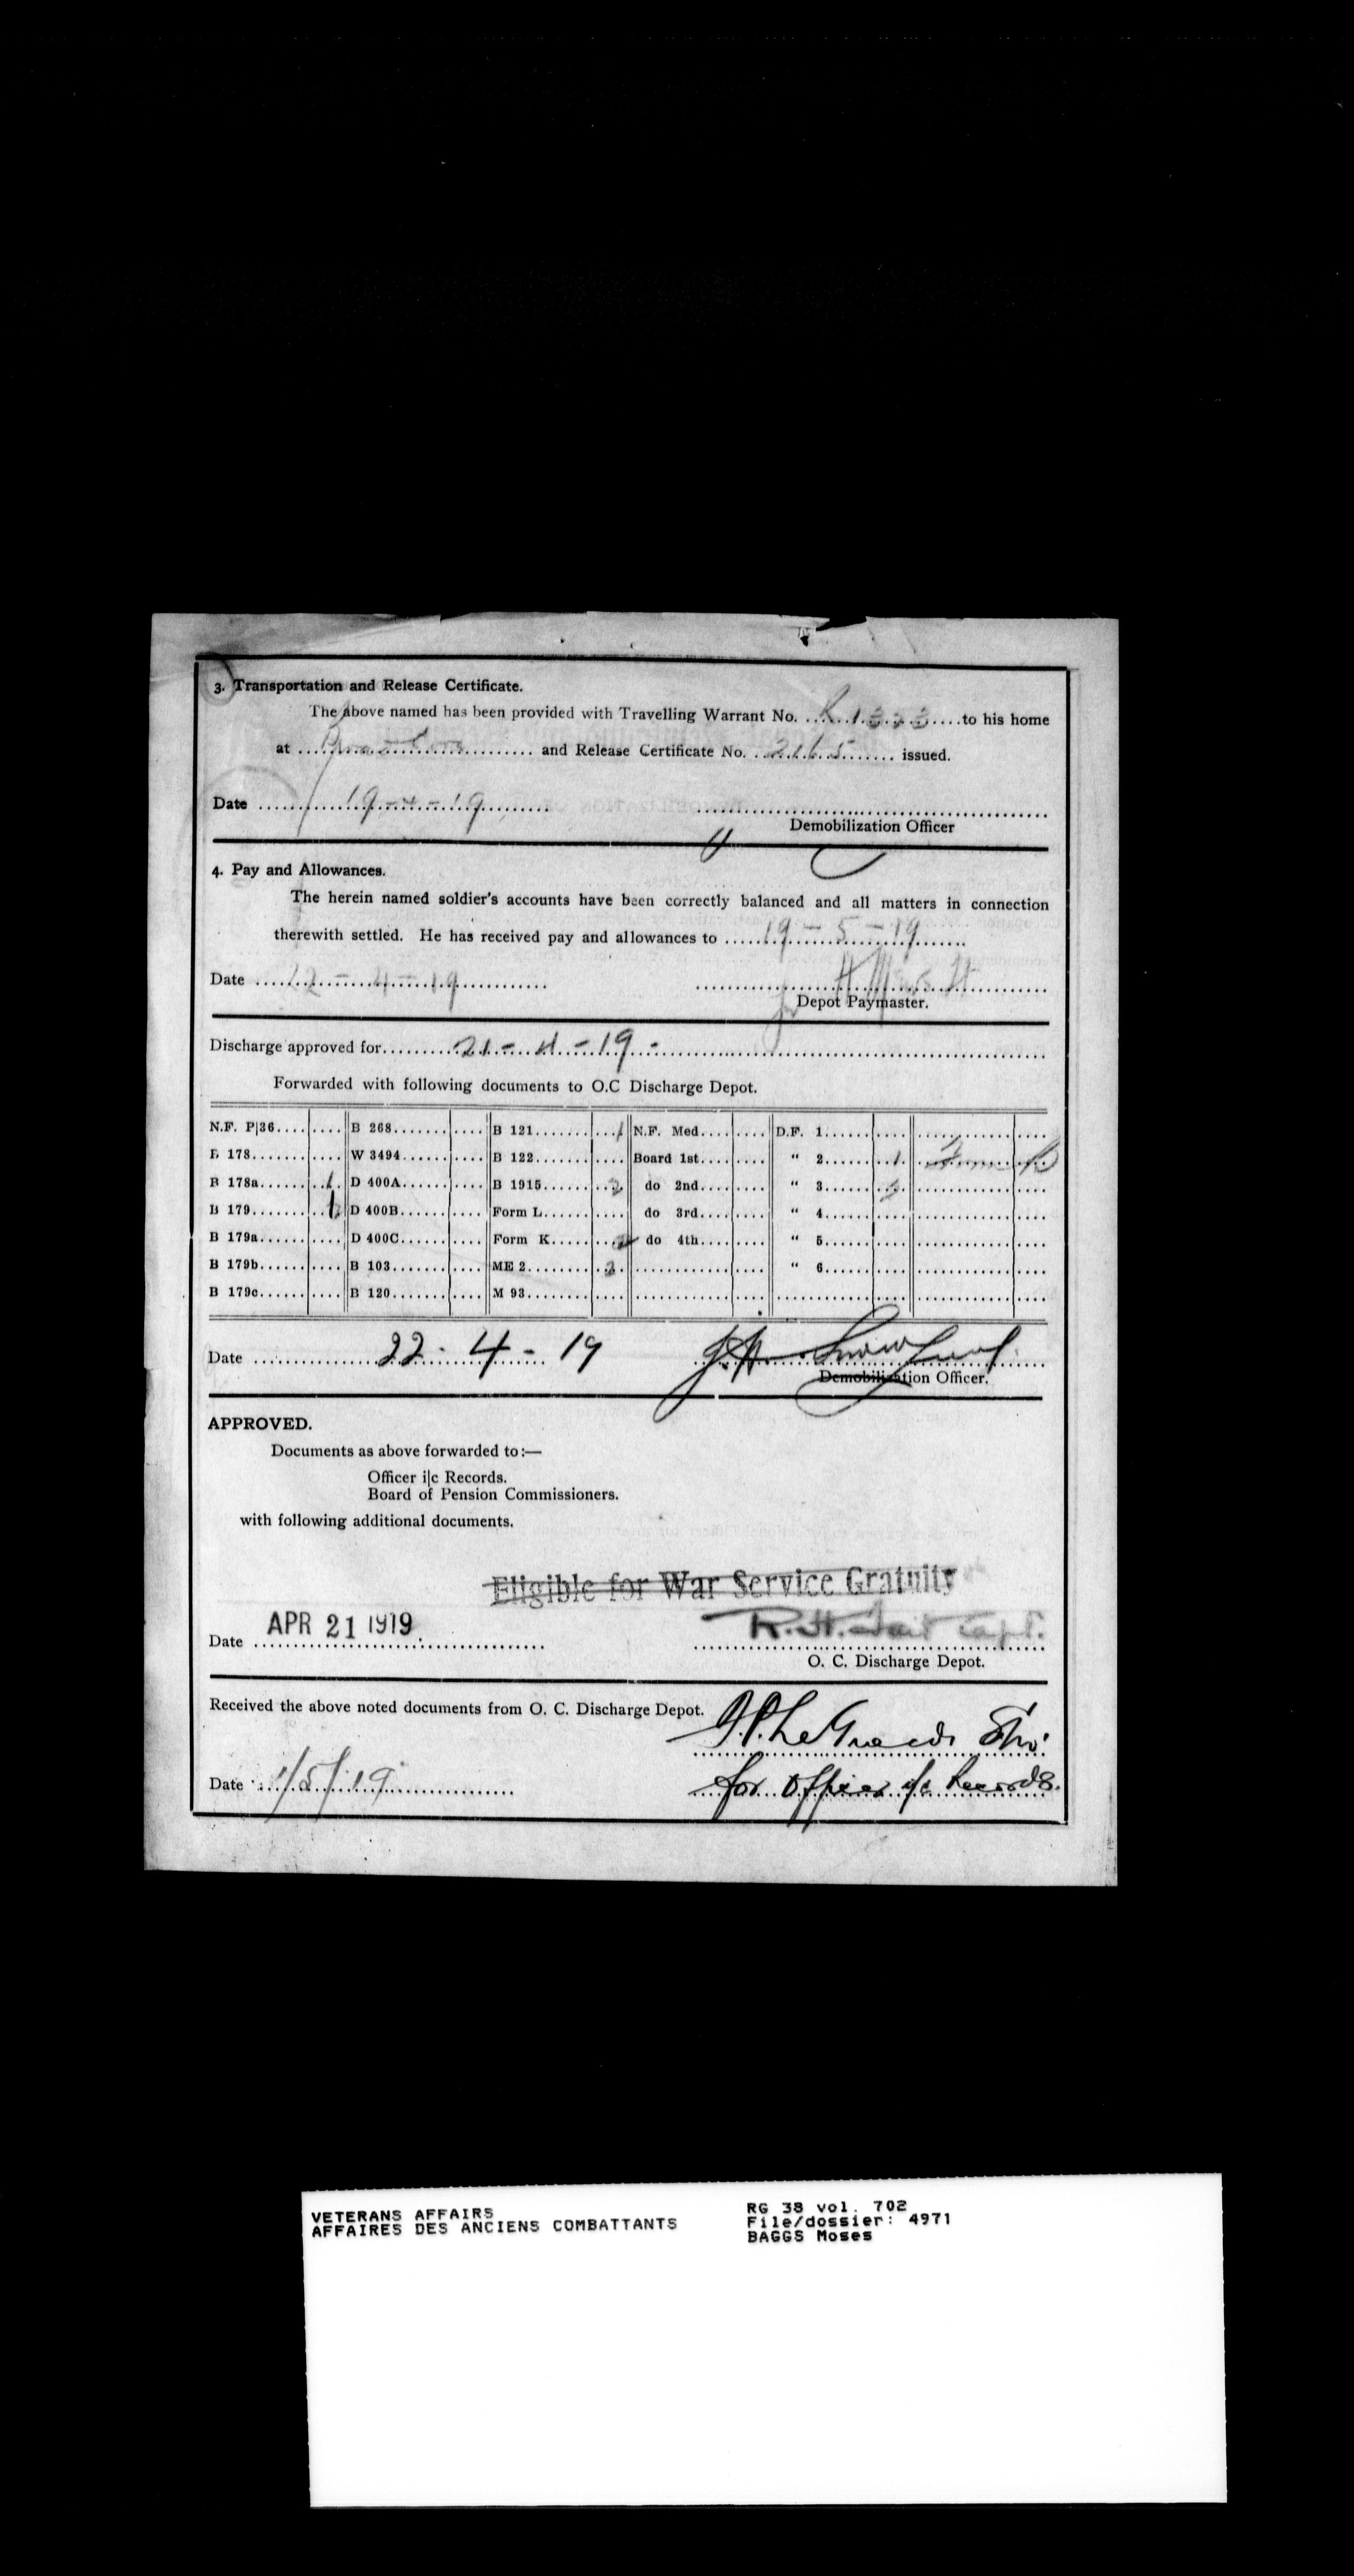 3. Transportation and Release Certificate.
The above named has been provided with Travelling Warrant No. to his home
at and Release Certificate No. 2165 issued.
Date 19-4-19
Demobilization Officer
4. Pay and Allowances.
The herein named soldier's accounts have been correctly balanced and all matters in connection
therewith settled. He has received pay and allowances to 19-5-19
Date 12-4-19
Depot Paymaster.
Discharge approved for 21-4-19-
Forwarded with following documents to O.C Discharge Depot.
N.F. P|36 B 268 B 121 1 N.F. Med. D.F. 1
B 178 W 3494 B 122 Board 1st " 2 1
B 178a 1 D 400A B 1915 2 do 2nd " 3
B 179 1 D 400B Form L do 3rd " 4
B 179a D 400C Form K 2 do 4th " 5
B 179b B 103 ME 2 2 " 6
B 179c B 120 M 93
Date 22-4-19
Demobilization Officer.
APPROVED.
Documents as above forwarded to:—
Officer i|c Records.
Board of Pension Commissioners.
with following additional documents.
Eligible for War Service Gratuity
Date APR 21 1919
R.H. Tait Capt.
O. C. Discharge Depot.
Received the above noted documents from O. C. Discharge Depot.
Date 1/5/19
for Officer i/c Records.
VETERANS AFFAIRS
AFFAIRES DES ANCIENS COMBATTANTS
RG 38 vol. 702
File/dossier: 4971
BAGGS Moses